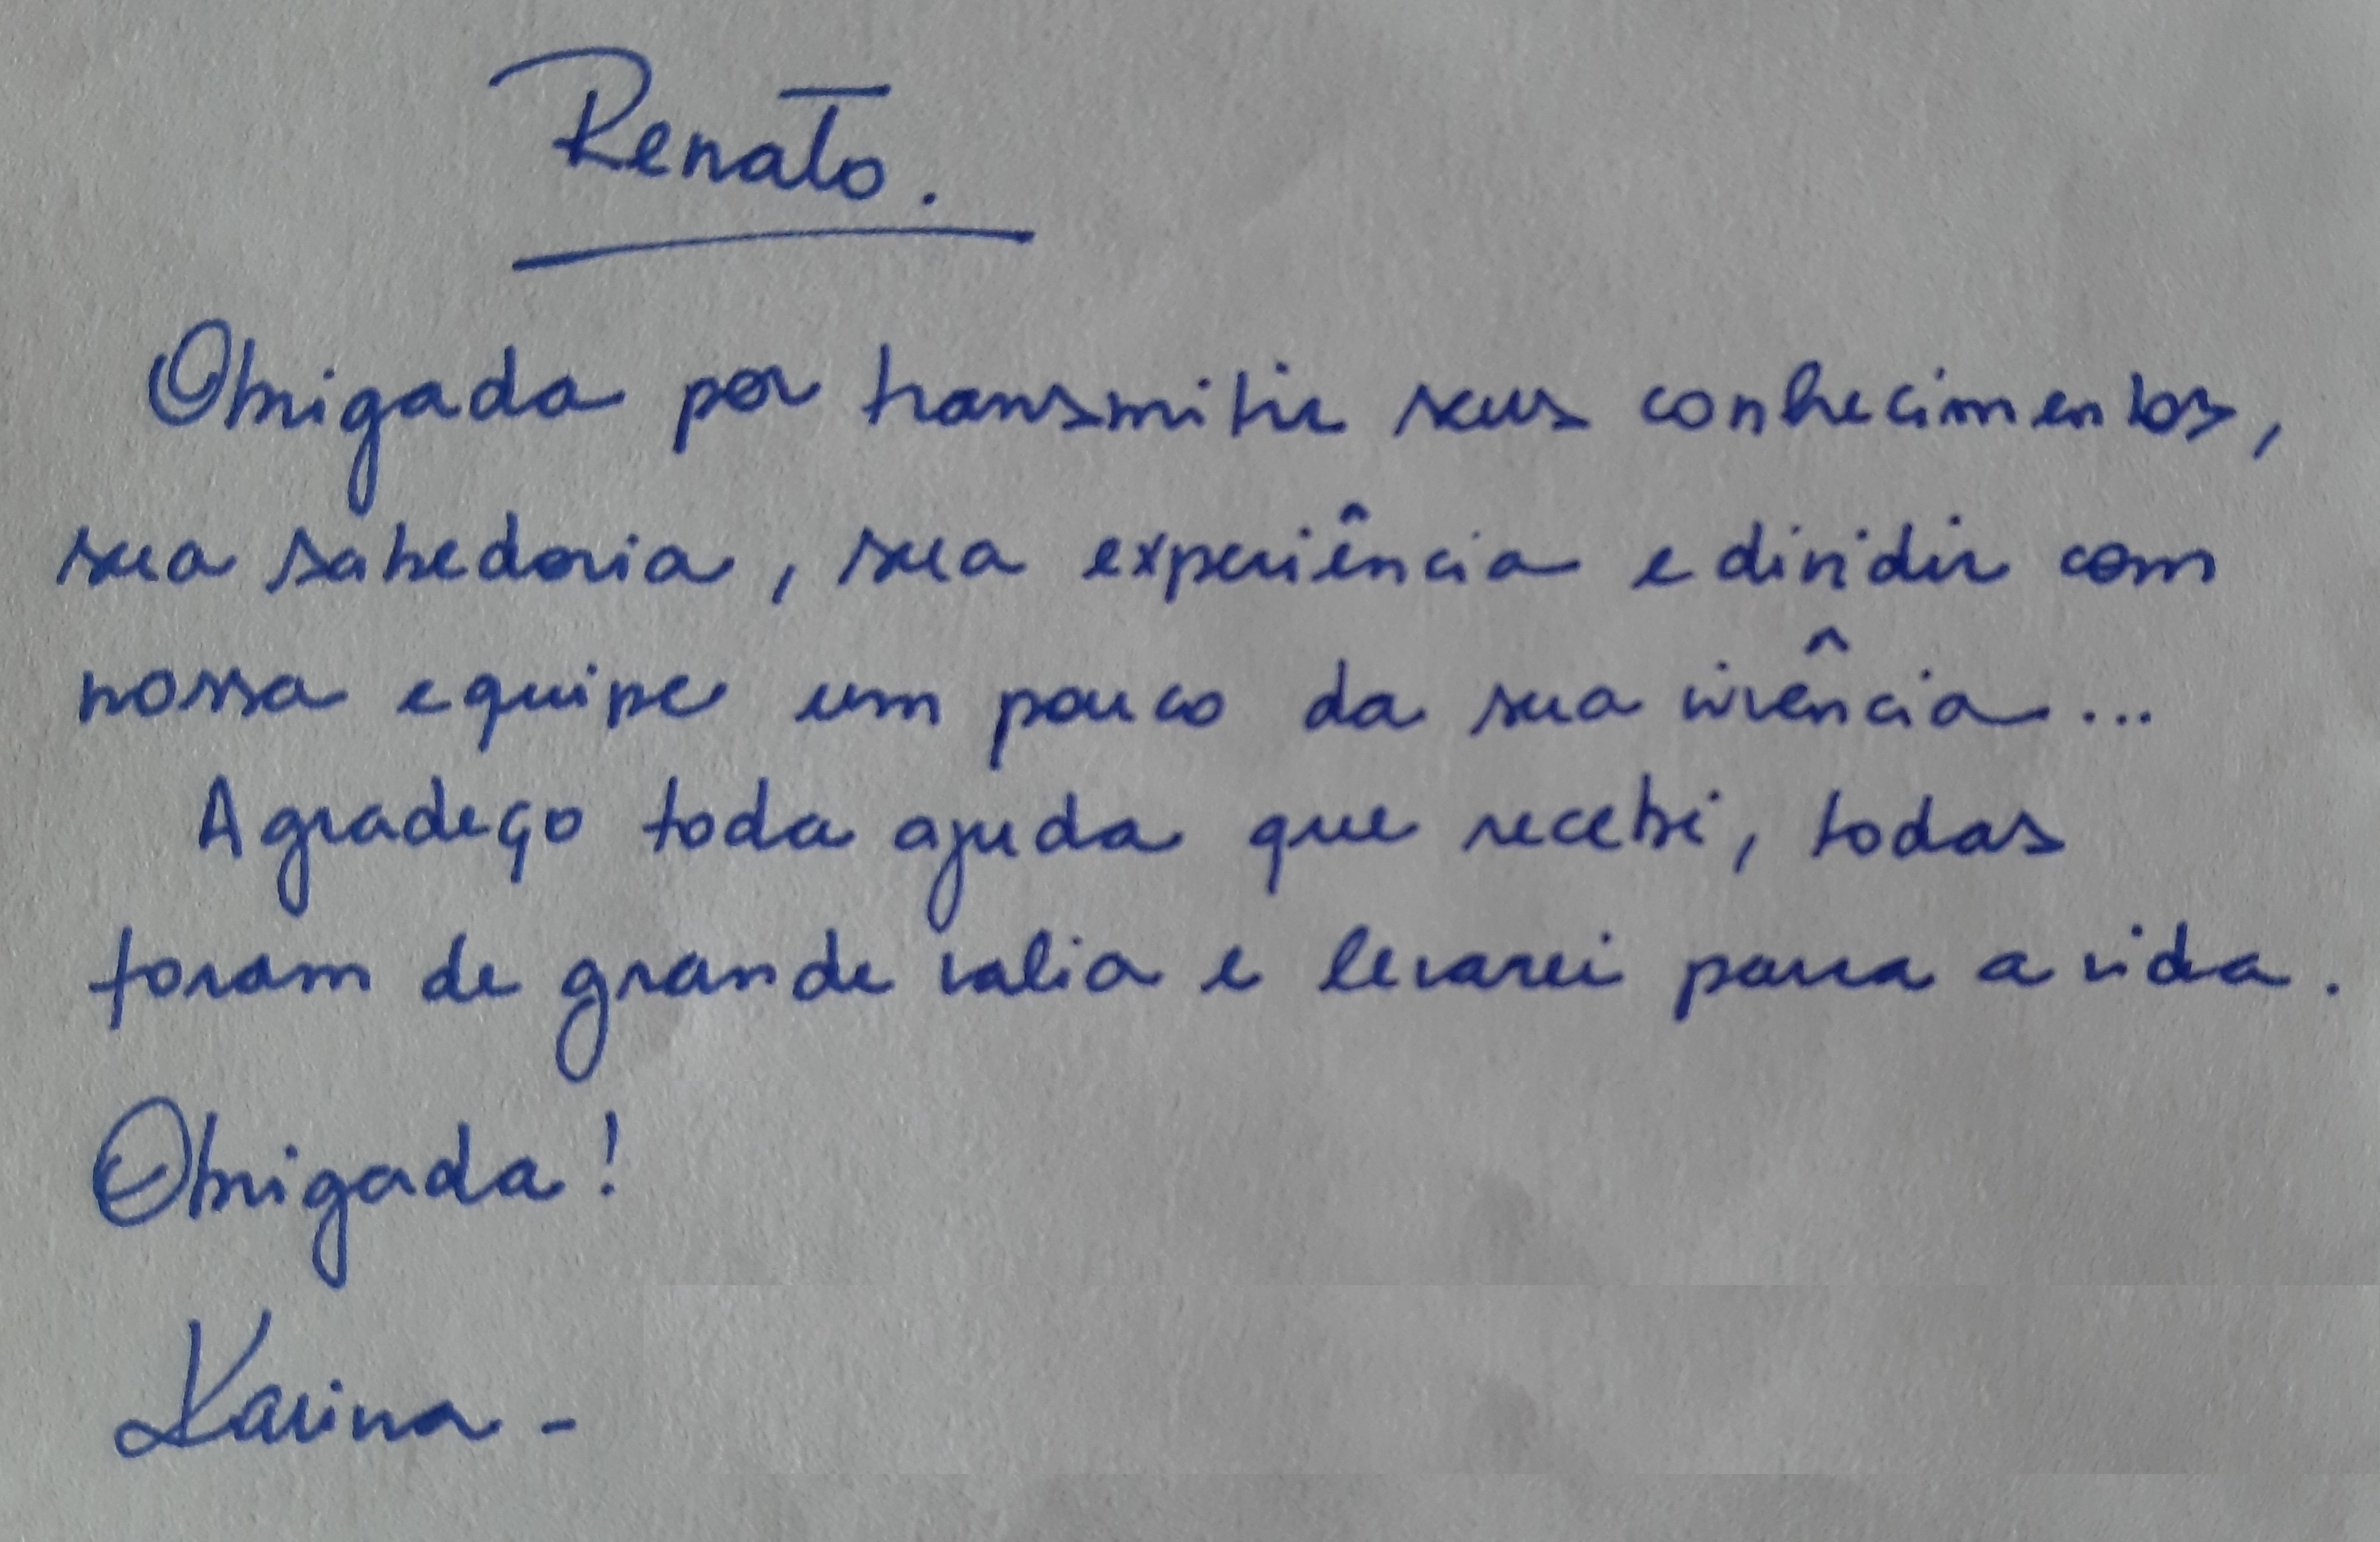 Renato.
Obrigada por transmitir seus conhecimentos,
sua sabedoria, sua experiência e dividir com
nossa equipe um pouco da sua vivência...
Agradeço toda ajuda que recebi, todas
foram de grande valia e levarei para a vida.
Obrigada!
Karina -